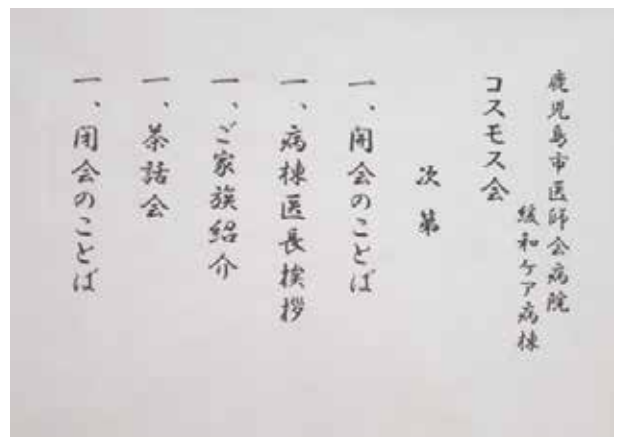 鹿児島市医師会病院
緩和ケア病棟
コスモス会
次第
一、開会のことば
一、病棟医長挨拶
一、ご家族紹介
一、茶話会
一、閉会のことば